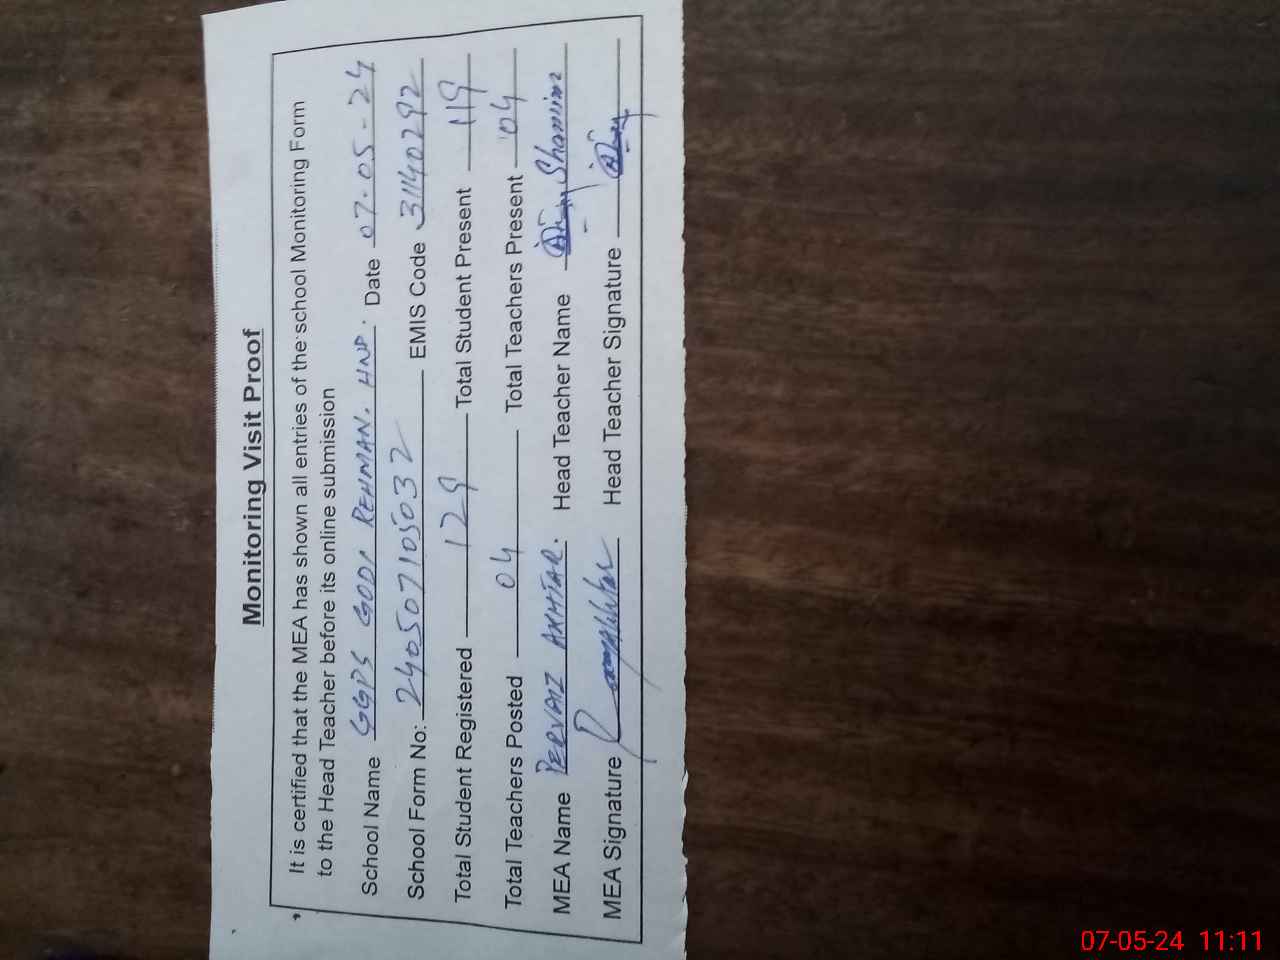 Monitoring Visit Proof
It is certified that the MEA has shown all entries of the school Monitoring Form
to the Head Teacher before its online submission
School Name GGPS GODI REHMAN. HNP. Date 07-05-24
School Form No: 240507105032 EMIS Code 31140292
Total Student Registered 129 Total Student Present 119
Total Teachers Posted 04 Total Teachers Present 04
MEA Name PERVAIZ AKHTAR. Head Teacher Name Shamim
MEA Signature Head Teacher Signature
07-05-24 11:11